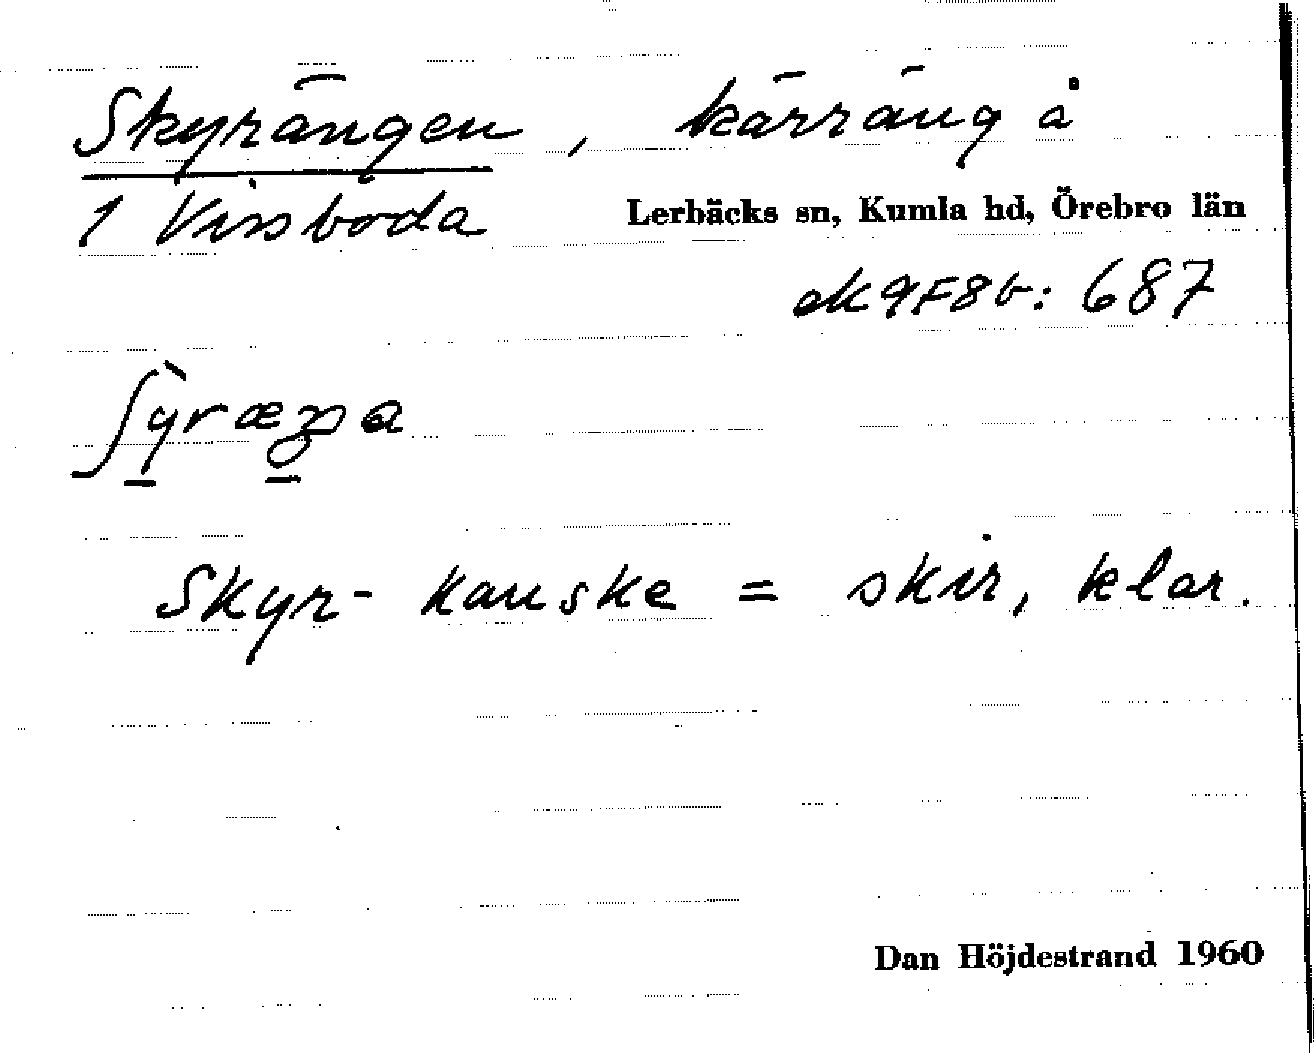 Skyrängen, kärräng å
1 Vissboda Lerbäcks sn, Kumla hd, Örebro län
ek 9F8b: 687
Skyr- kanske = skir, klar.
Dan Höjdestrand 1960